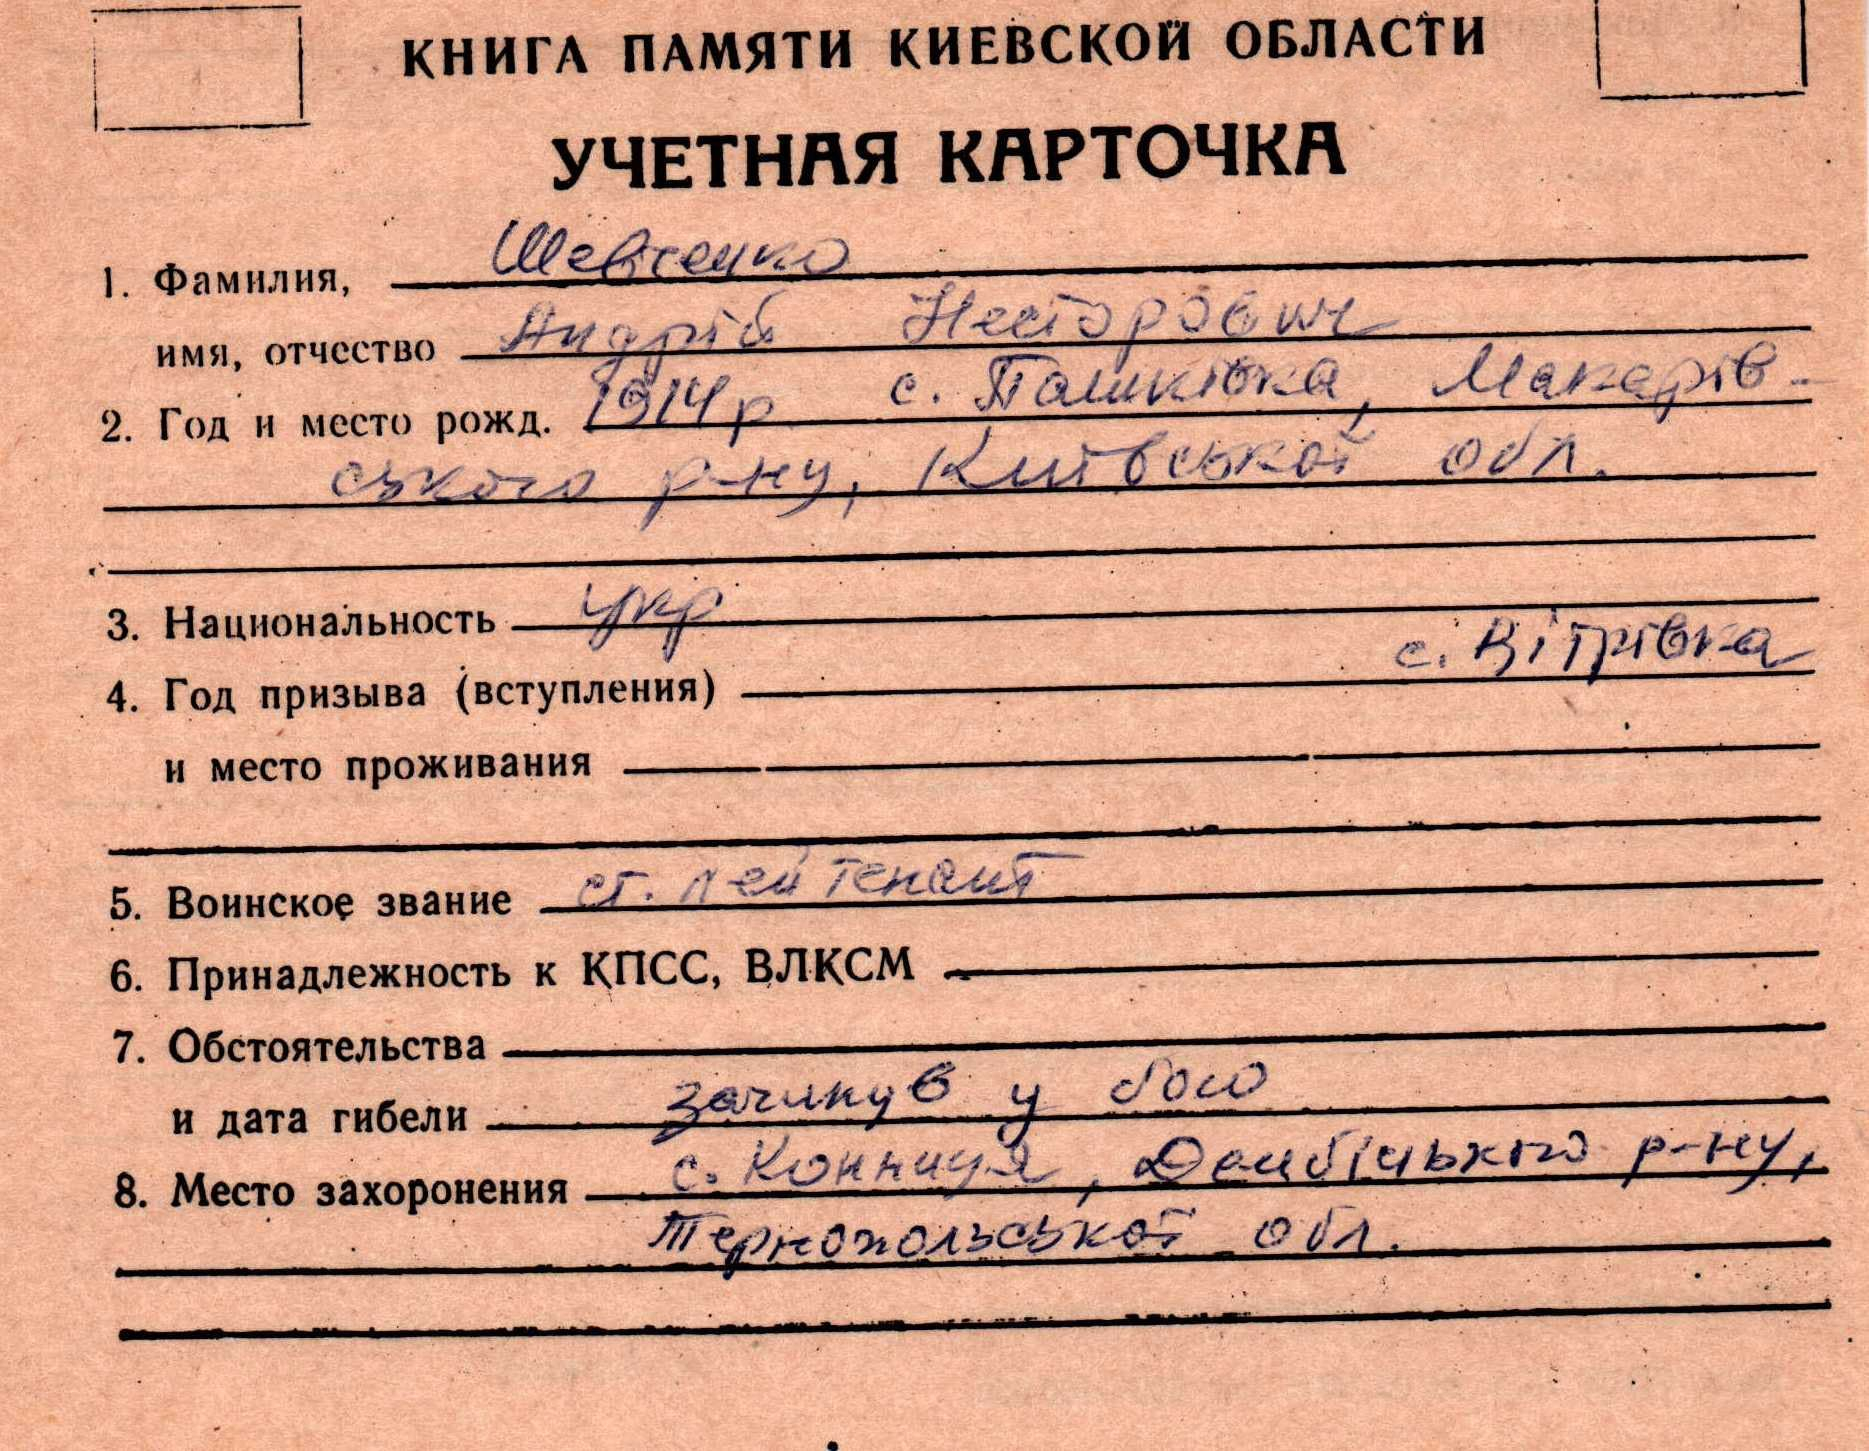 КНИГА ПАМЯТИ КИЕВСКОЙ ОБЛАСТИ
УЧЕТНАЯ КАРТОЧКА
Шевченко
1. Фамилия,
имя, отчество Андрій Несторович
2. Год и место рожд. 1914 р с. Пашківка, Макарів-
ського р-ну, Київської обл.
3. Национальность укр
с. Вітрівка
4. Год призыва (вступления)
и место проживания
5. Воинское звание ст. лейтенант
6. Принадлежность к КПСС, ВЛКСМ
7. Обстоятельства
и дата гибели загинув у бою
8. Место захоронения с. Конниця, р-ну,
Тернопольської обл.